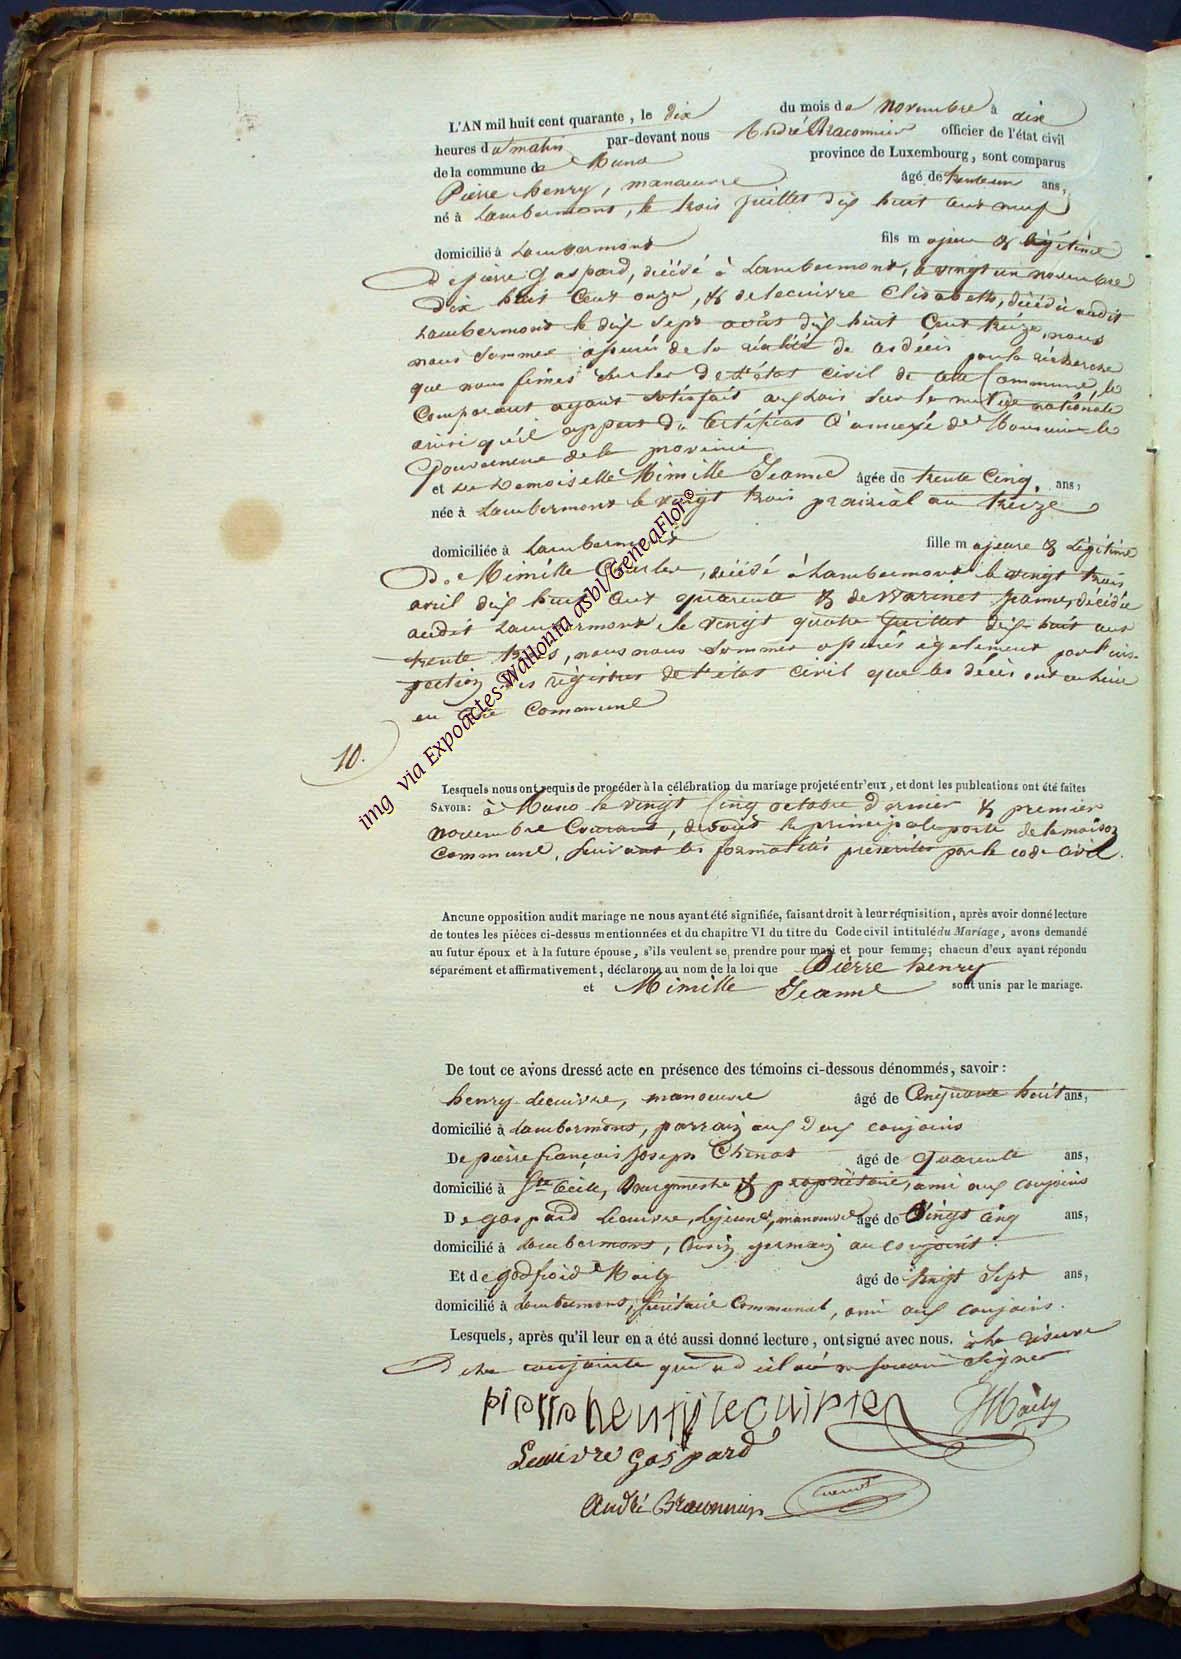 L'AN mil huit cent quarante, le dix du mois de novembre à dix
heures du matin par-devant nous André Braconnier officier de l'état civil
de la commune de Muno province de Luxembourg, sont comparus
Pierre henry, manoeuvre âgé de trente un ans,
né à Lambermont, le trois juillet dix huit cent neuf
domicilié à Lambermont fils majeur & légitime
De pierre Gaspard, décédé à Lambermont, le vingt un novembre
dix huit Cent onze, & de lecuivre Elisabeth, décédée audit
Lambermont le dix sept août dix huit Cent treize, nous
nous sommes assurés de la réalité de ces décès par la récherche
que nous fimes sur les de l'état civil de cette Commune, le
Comparant ayant satisfait aux lois sur la milice nationale
ainsi qu'il appert du Certificat ci annexé de Monsieur le
Gouverneur de la province
et La Demoiselle Mimille Jeanne âgée de trente Cinq. ans,
née à Lambermont le vingt trois prairial an treize
domiciliée à Lambermont fille majeure & légitime
De Mimille Charles, décédé à Lambermont le vingt trois
avril dix huit cent quarante & de Warinet Jeanne, décédée
audit Lambermont le vingt quatre juillet dix-huit cent
trente trois, nous nous sommes assurés également par l'ins-
pection des régistres de l'état civil que les décès ont eu lieu
en cette Commune
10.
Lesquels nous ont requis de procéder à la célébration du mariage projeté entr'eux, et dont les publications ont été faites
SAVOIR: à Muno le vingt Cinq octobre Dernier & premier
novembre Courant, devant la principale porte de la maison
Commune, suivant les formalités préscrites par le code civil.
Ancune opposition audit mariage ne nous ayant été signifiée, faisant droit à leur réquisition, après avoir donné lecture
de toutes les pièces ci-dessus mentionnées et du chapitre VI du titre du Code civil intitulé du Mariage, avons demandé
au futur époux et à la future épouse, s'ils veulent se prendre pour mari et pour femme; chacun d'eux ayant répondu
séparément et affirmativement, déclarons au nom de la loi que Pierre henry
et Mimille Jeanne sont unis par le mariage.
De tout ce avons dressé acte en présence des témoins ci-dessous dénommés, savoir:
henry lecuivre, manoeuvre âgé de Cinquante huit ans,
domicilié à Lambermont, parrain aux deux conjoins
De pierre françois Joseph Chenot âgé de Quarente ans,
domicilié à Ste Cécile, Bourgmestre & propriétaire, ami aux conjoins
De gaspard lecuivre, lejeune, manoeuvre âgé de Vingt cinq ans,
domicilié à Lambermont, Cousin germain au conjoint.
Et de godfroid Maily âgé de Vingt Sept ans,
domicilié à Lambermont, sécrétaire Communal, ami aux conjoins.
Lesquels, après qu'il leur en a été aussi donné lecture, ont signé avec nous. à la réserve
De la conjointe qui a déclaré ne savoir Signer
pierre henri lecuivre Mailly
Lecuivre Gaspard
André Braconnier Chenot
img via Expoactes-Wallonia asbl/GeneaFlor®